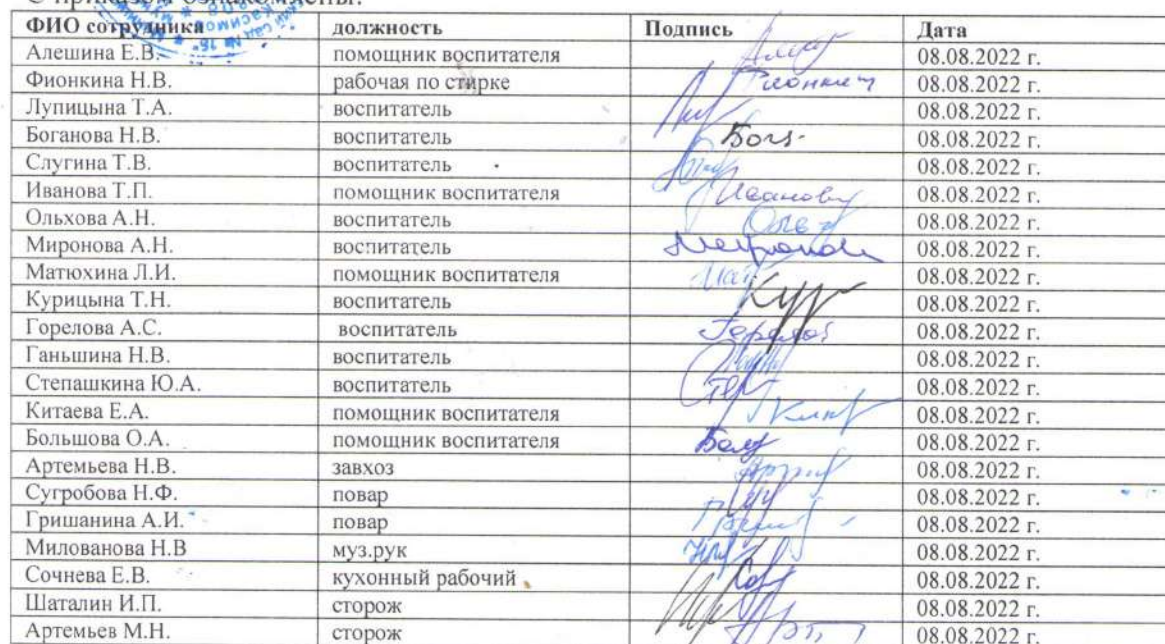 С приказом ознакомлены:
ФИО сотрудника должность Подпись Дата
Алешина Е.В. помощник воспитателя 08.08.2022 г.
Фионкина Н.В. рабочая по стирке 08.08.2022 г.
Лупицына Т.А. воспитатель 08.08.2022 г.
Боганова Н.В. воспитатель 08.08.2022 г.
Слугина Т.В. воспитатель 08.08.2022 г.
Иванова Т.П. помощник воспитателя 08.08.2022 г.
Ольхова А.Н. воспитатель 08.08.2022 г.
Миронова А.Н. воспитатель 08.08.2022 г.
Матюхина Л.И. помощник воспитателя 08.08.2022 г.
Курицына Т.Н. воспитатель 08.08.2022 г.
Горелова А.С. воспитатель 08.08.2022 г.
Ганьшина Н.В. воспитатель 08.08.2022 г.
Степашкина Ю.А. воспитатель 08.08.2022 г.
Китаева Е.А. помощник воспитателя 08.08.2022 г.
Большова О.А. помощник воспитателя 08.08.2022 г.
Артемьева Н.В. завхоз 08.08.2022 г.
Сугробова Н.Ф. повар 08.08.2022 г.
Гришанина А.И. повар 08.08.2022 г.
Милованова Н.В муз.рук 08.08.2022 г.
Сочнева Е.В. кухонный рабочий 08.08.2022 г.
Шаталин И.П. сторож 08.08.2022 г.
Артемьев М.Н. сторож 08.08.2022 г.